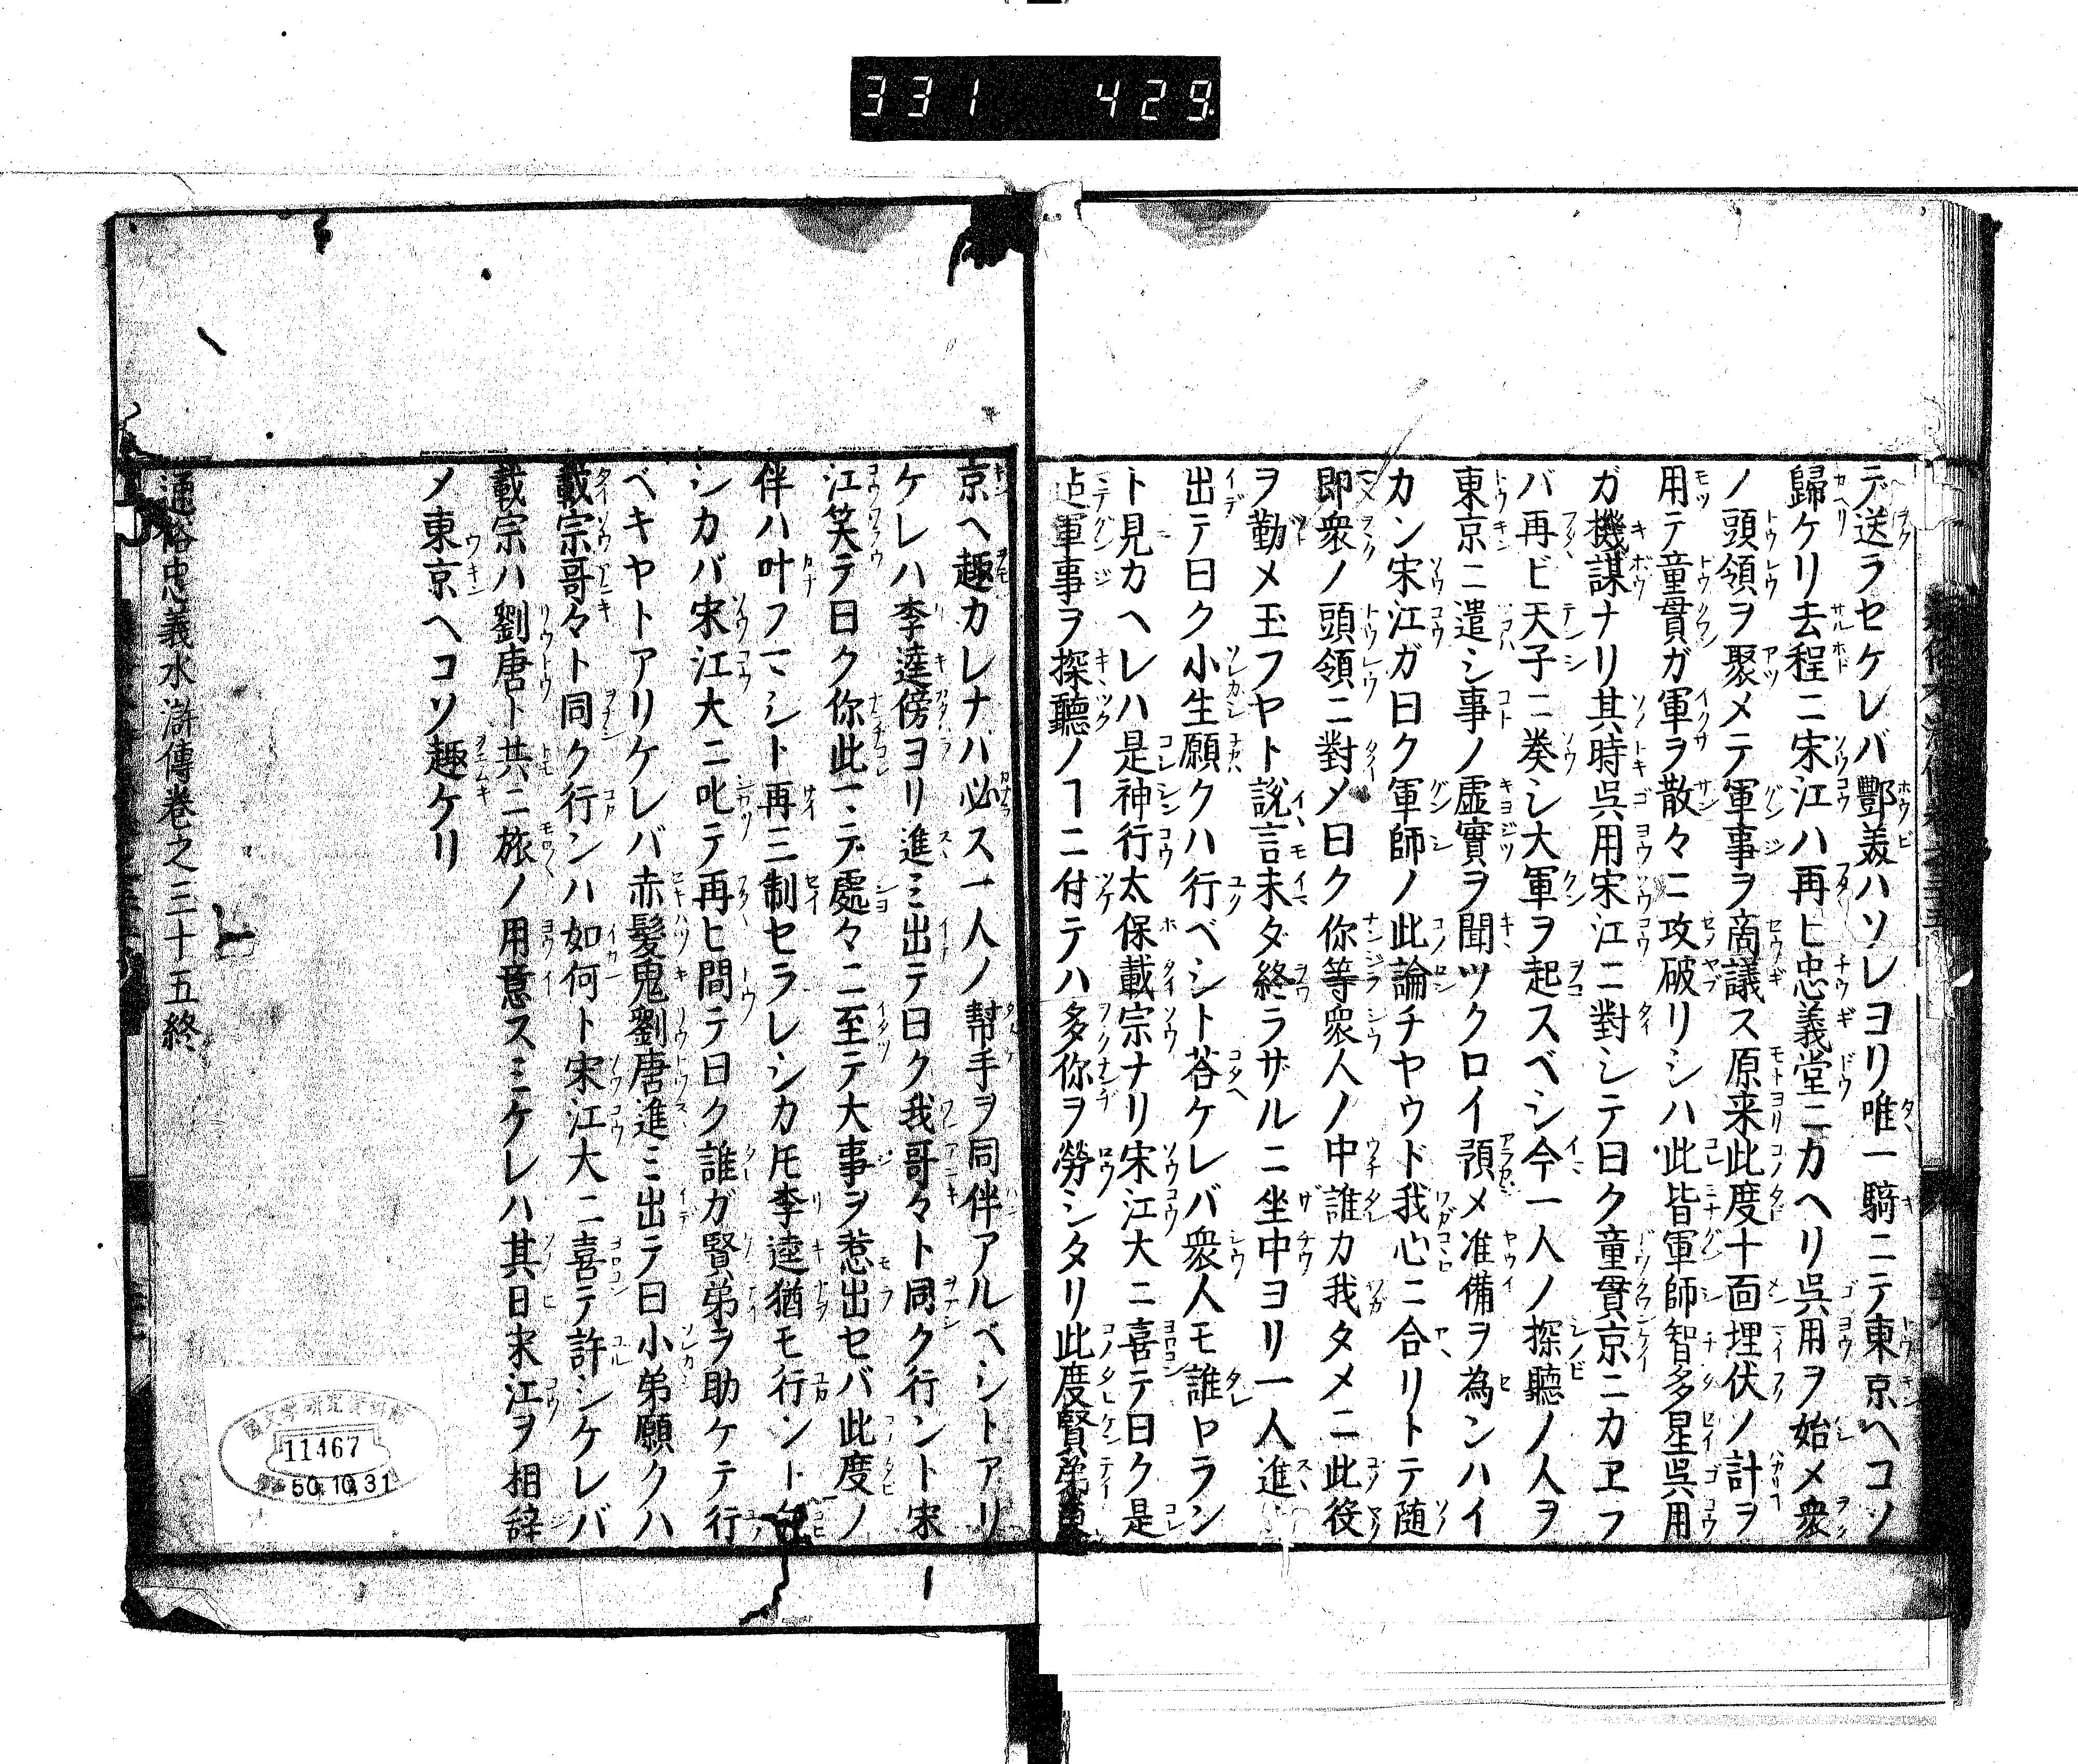 331 429
デ送ラセケレバ酆美ハソレヨリ唯一騎ニテ東京ヘコソ
歸ケリ去程ニ宋江ハ再ヒ忠義堂ニカヘリ呉用ヲ始メ衆
ノ頭領ヲ聚メテ軍事ヲ商議ス原来此度十面埋伏ノ計ヲ
用テ童貫ガ軍ヲ散々ニ攻破リシハ此皆軍師智多星呉用
ガ機謀ナリ其時呉用宋江ニ對シテ曰ク童貫京ニカヱフ
バ再ビ天子ニ奏シ大軍ヲ起スベシ今一人ノ探聽ノ人ヲ
東京ニ遣シ事ノ虚實ヲ聞ツクロイ預メ准備ヲ為ンハイ
カン宋江ガ曰ク軍師ノ此論チヤウド我心ニ合リトテ随
即衆ノ頭領ニ對メ曰ク你等衆人ノ中誰カ我タメニ此役
ヲ勤メ玉フヤト説言未ダ終ラザルニ坐中ヨリ一人進
出テ曰ク小生願クハ行ベシト荅ケレバ衆人モ誰ヤラン
ト見カヘレハ是神行太保戴宗ナリ宋江大ニ喜テ曰ク是
迠軍事ヲ探聽ノヿニ付テハ多你ヲ勞シタリ此度賢弟
京ヘ趣カレナバ必ス一人ノ幇手ヲ同伴アルベシトアリ
ケレハ李逵傍ヨリ進ミ出テ曰ク我哥々ト同ク行ント宋
江笑テ曰ク你此マデ處々ニ至テ大事ヲ惹出セバ此度ノ
伴ハ叶フマシト再三制セラレシカ𪜈李逵猶モ行ント
シカバ宋江大ニ叱テ再ヒ問テ曰ク誰ガ賢弟ヲ助ケテ行
ベキヤトアリケレバ赤髪鬼劉唐進ミ出テ曰小弟願クハ
戴宗哥々ト同ク行ンハ如何ト宋江大ニ喜テ許シケレバ
戴宗ハ劉唐ト共ニ旅ノ用意スミケレハ其日宋江ヲ相辞
メ東京ヘコソ趣ケリ
通俗忠義水滸傳巻之三十五終
11467
50.10.31